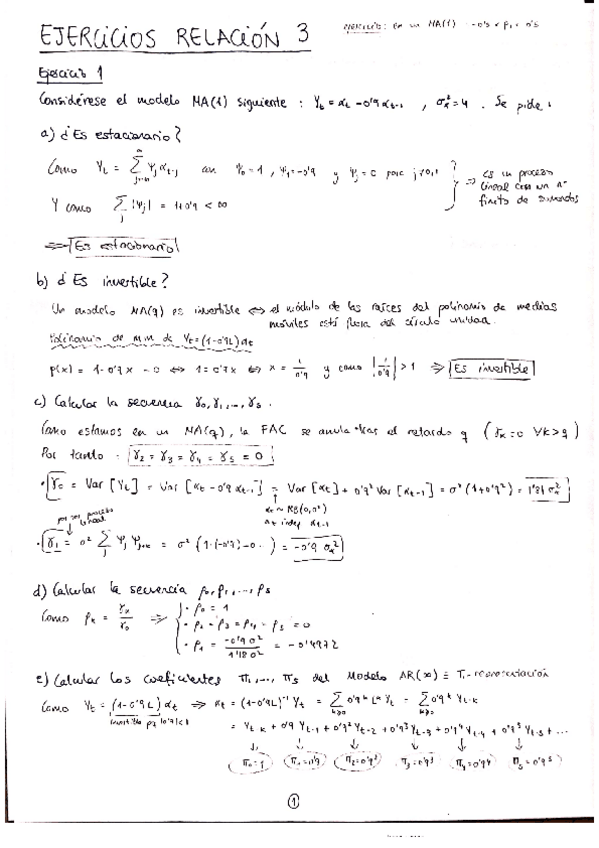 EJERCICIOS RELACIÓN 3
en un MA(1) : -0'5 < ρ₁ < 0'5
Ejercicio 1
Considérese el modelo MA(1) siguiente : Yₜ = αₜ - 0'9 αₜ₋₁ , σ²ₐ = 4 . Se pide :
a) ¿Es estacionario?
Como Yₜ = Σ ψⱼ αₜ₋ⱼ con ψ₀ = 1 , ψ₁ = -0'9 y ψⱼ = 0 para j ≠ 0,1 ⇒ es un proceso
lineal con un nº
finito de sumandos
Y como Σⱼ |ψⱼ| = 1+0'9 < ∞
⇒ Es estacionario
b) ¿Es invertible?
Un modelo MA(q) es invertible ⇔ el módulo de las raíces del polinomio de medias
móviles está fuera del círculo unidad.
Polinomio de m.m de Yₜ = (1-0'9L) αₜ
p(x) = 1 - 0'9x = 0 ⇔ 1 = 0'9x ⇔ x = 1/0'9 y como |1/0'9| > 1 ⇒ Es invertible
c) Calcular la secuencia γ₀, γ₁, ..., γ₅.
Como estamos en un MA(q), la FAC se anula tras el retardo q (γₖ = 0 ∀k>q)
Por tanto : γ₂ = γ₃ = γ₄ = γ₅ = 0
· γ₀ = Var[Yₜ] = Var[αₜ - 0'9 αₜ₋₁] = Var[αₜ] + 0'9² Var[αₜ₋₁] = σ²(1+0'9²) = 1'81 σ²ₐ
αₜ ~ RB(0,σ²)
αₜ indep αₜ₋₁
por ser proceso
lineal
· γ₁ = σ² Σⱼ ψⱼ ψⱼ₊ₖ = σ² (1·(-0'9) - 0 ...) = -0'9 σ²ₐ
d) Calcular la secuencia ρ₀, ρ₁, ..., ρ₅
Como ρₖ = γₖ/γ₀ ⇒
· ρ₀ = 1
· ρ₂ = ρ₃ = ρ₄ = ρ₅ = 0
· ρ₁ = -0'9 σ² / 1'81 σ² = -0'4972
e) Calcular los coeficientes π₁, ..., π₅ del modelo AR(∞) ≡ π-representación
Como Yₜ = (1-0'9L) αₜ ⇒ αₜ = (1-0'9L)⁻¹ Yₜ = Σ 0'9ᵏ Lᵏ Yₜ = Σ 0'9ᵏ Yₜ₋ₖ
invertible pq |0'9|<1
= Yₜ + 0'9 Yₜ₋₁ + 0'9² Yₜ₋₂ + 0'9³ Yₜ₋₃ + 0'9⁴ Yₜ₋₄ + 0'9⁵ Yₜ₋₅ + ...
π₀=1 π₁=0'9 π₂=0'9² π₃=0'9³ π₄=0'9⁴ π₅=0'9⁵
1